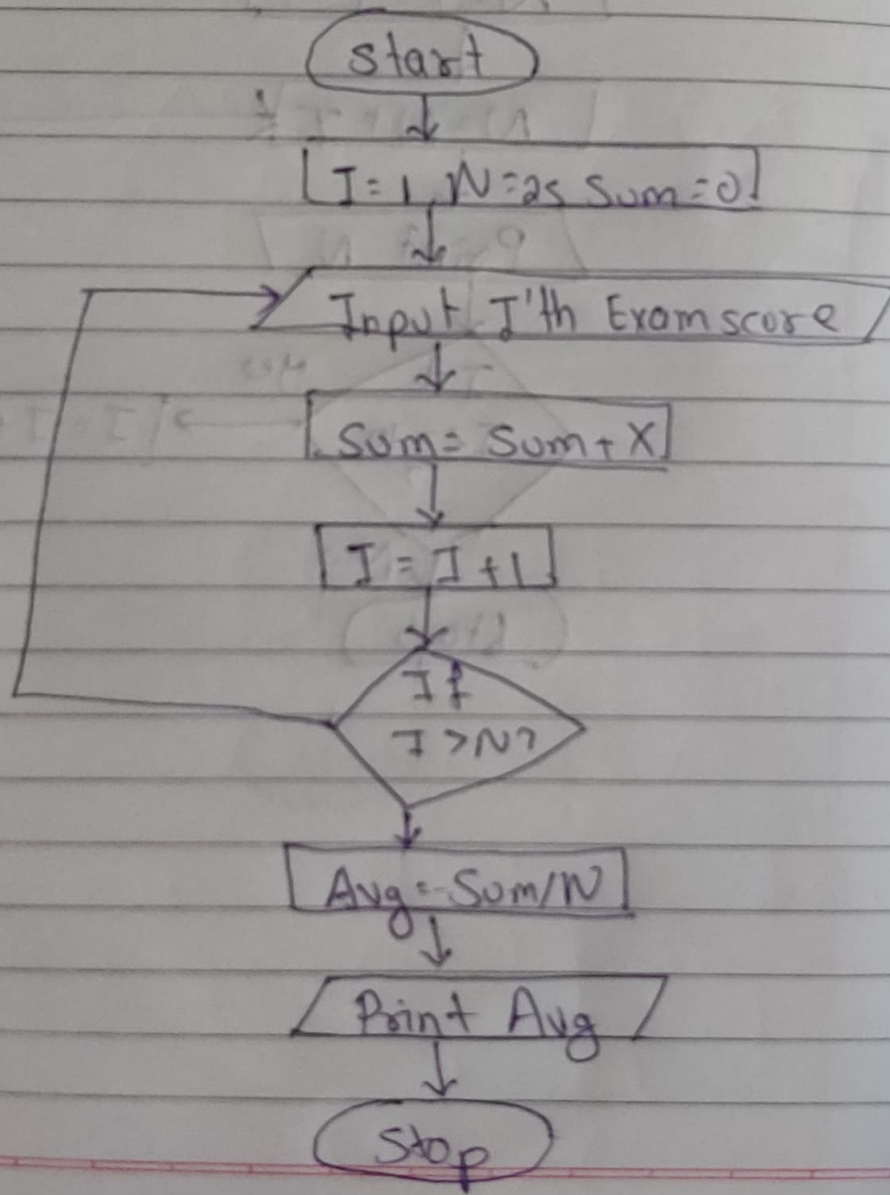 Start
I = 1, N = 25 Sum = 0
Input I'th Exam score
Sum = Sum + X
I = I + 1
If
I > N?
Avg = Sum/N
Print Avg
Stop